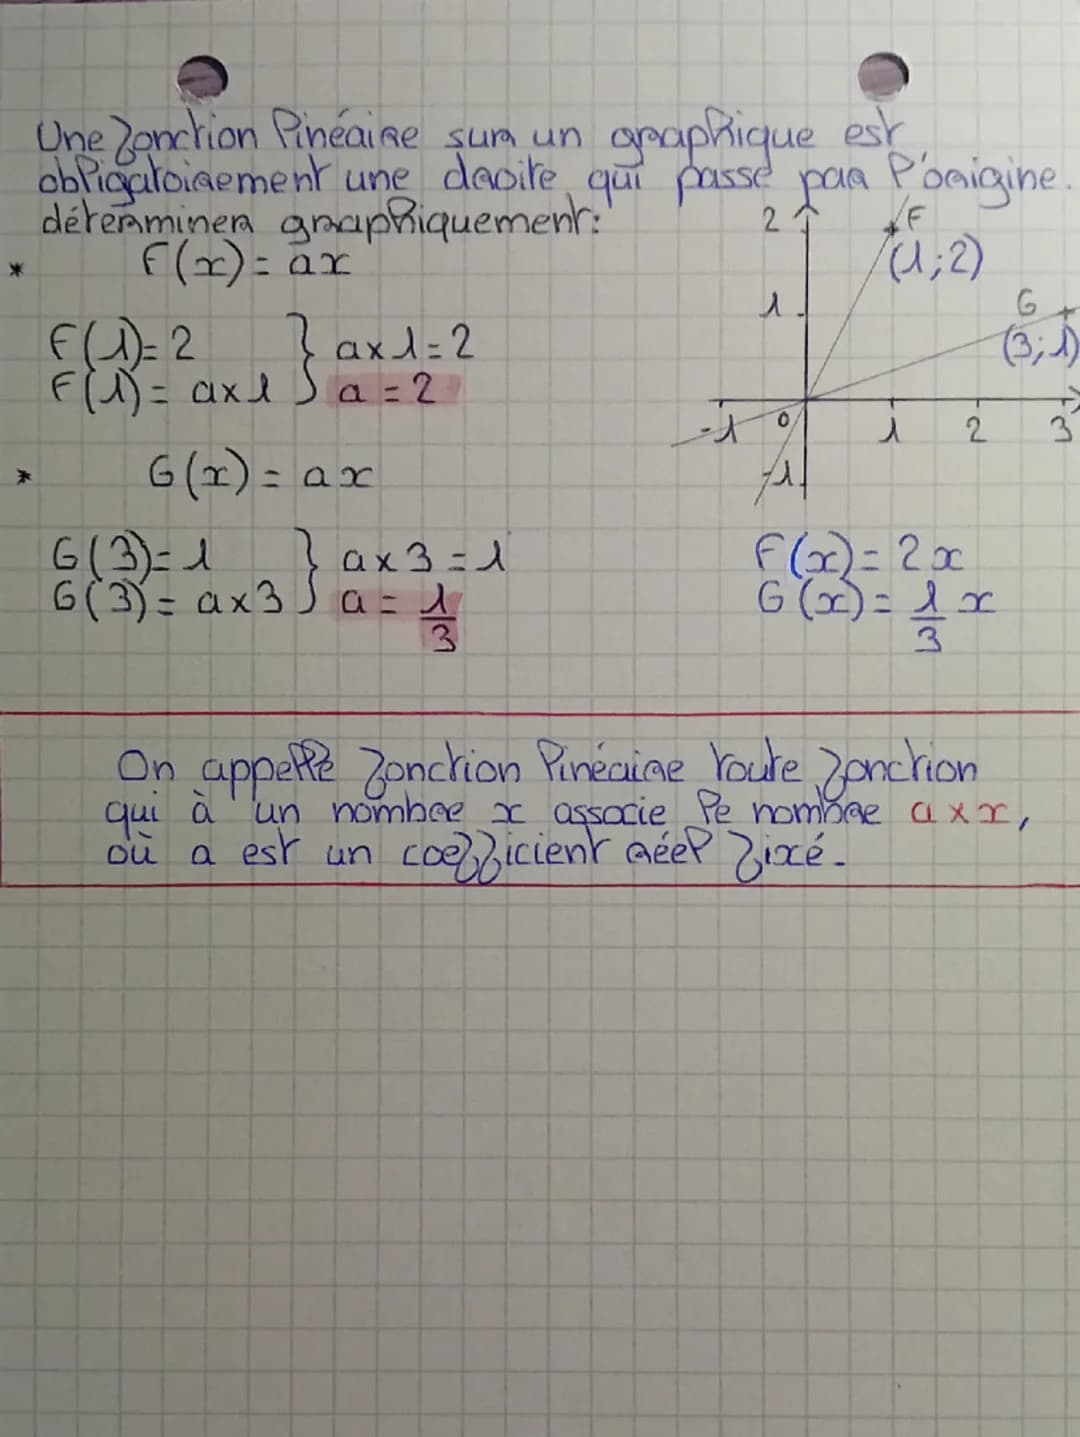 Une fonction linéaire sur un graphique est
obligatoirement une droite qui passe par l'origine.
déterminer graphiquement:
* F(x) = ax
F(1) = 2 } a x 1 = 2
F(1) = a x 1 } a = 2
* G(x) = ax
G(3) = 1 } a x 3 = 1
G(3) = a x 3 } a = 1/3
2
F
(1;2)
1
G
(3;1)
-1 0 1 2 3
-1
F(x) = 2x
G(x) = 1/3 x
On appelle fonction linéaire toute fonction
qui à un nombre x associe le nombre a x x,
où a est un coefficient réel fixé.